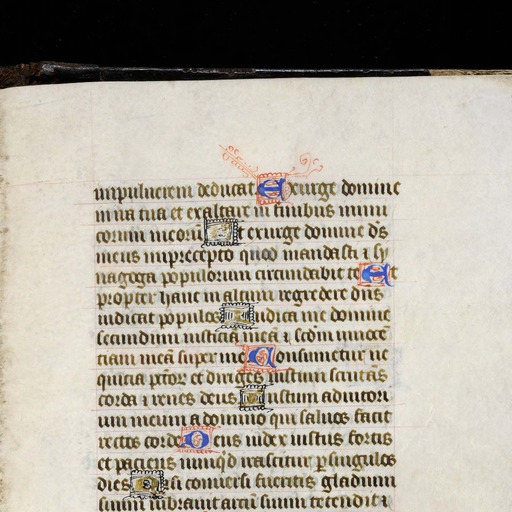 inpulverem deducat Exurge domine
in ira tua et exaltare in finibus inimi
corum meorū Et exurge domine ds̄
meus inprecepto quod mandasti ⁊ sy
nagoga populorum circundabit te Et
propter hanc in altum regredere dn̄s
iudicat populos Iudica me domine
secundum iusticiā meā ⁊ scd̄m innocē
tiam meā super me Consumetur ne
quicia pctōr̄ et diriges iustum scrutās
corda ⁊ renes deus Iustum adiutori
um meum a domino qui saluos facit
rectos corde Deus iudex iustus fortis
et paciens nunq̄d irascitur p singulos
dies Nisi conuersi fueritis gladium
suum uibrauit arcū suum tetendit ⁊